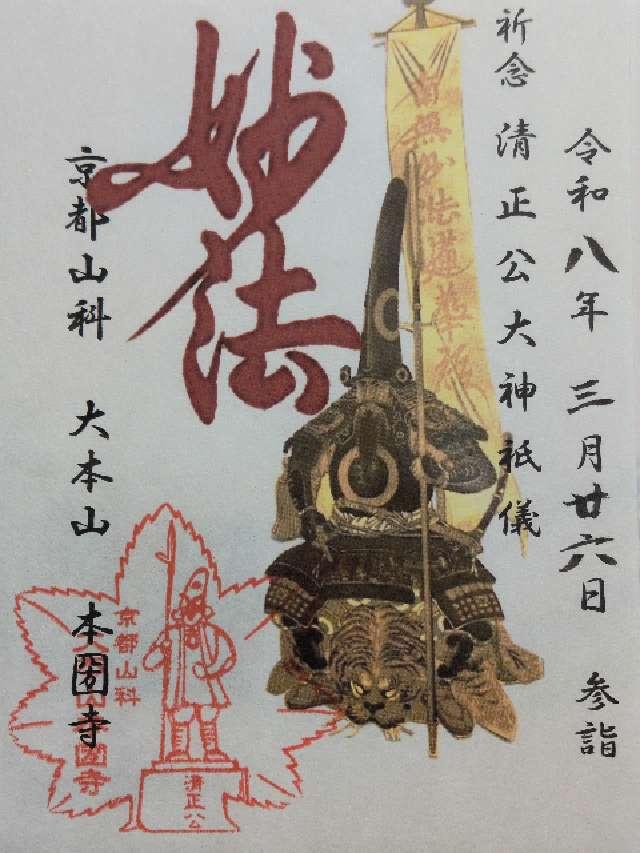 令和八年 三月廿六日 参詣
祈念 清正公大神祇儀
南無妙法蓮華経
妙法
京都山科 大本山 本圀寺
京都山科
大本山本圀寺
清正公